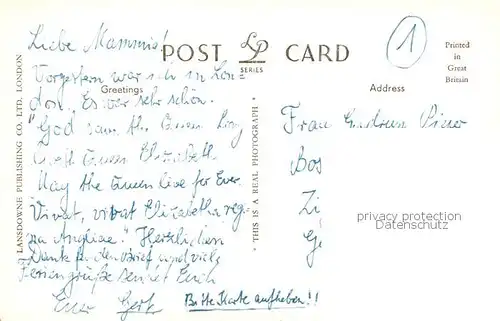 Liebe Mammie!
POST CARD
LP
SERIES
1
Printed
in
Great
Britain
Greetings
Address
Vorgestern war ich in Lon=
don. Es war sehr schön.
"God save the Queen Long
Queen Elizabeth
May the Queen live for Ever.
Vivat, vivat Elizabetha reg=
na Angliae." Herzlichen
Dank für den Brief und viele
Feriengrüße sendet Euch
Euer Gerk
Bitte Karte aufheben!!
Frau
Bos
Zi
LANSDOWNE PUBLISHING CO. LTD. LONDON
* THIS IS A REAL PHOTOGRAPH *
privacy protection
Datenschutz